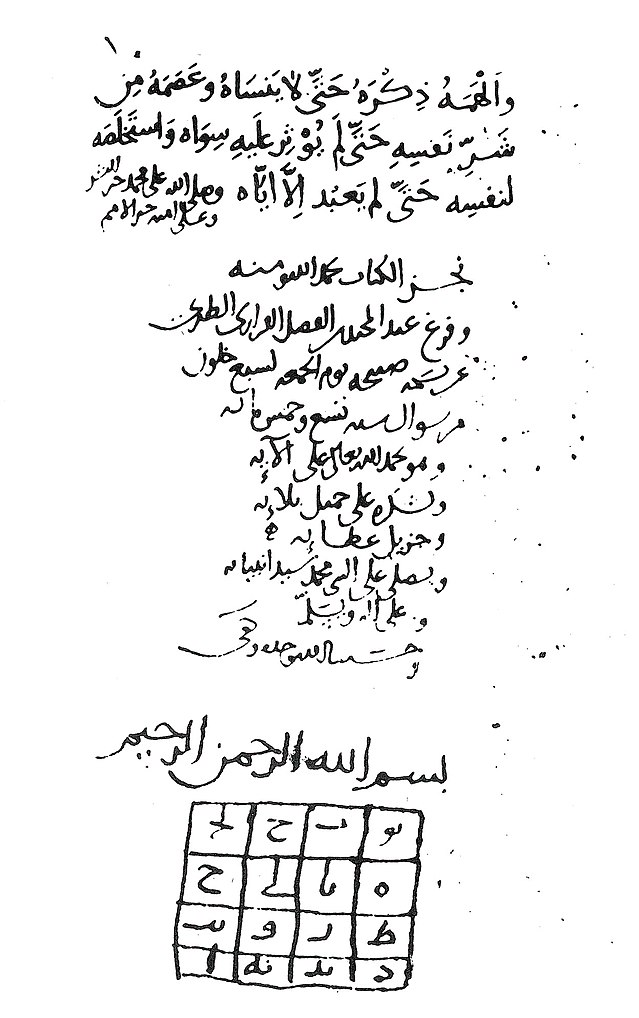 وألهمه ذِكْرَهُ حَتَّى لا يَنسَاهُ وعَصَمَهُ مِن
شَرِّ نَفسِهِ حَتَّى لَم يُؤْثِر عَلَيهِ سِوَاه وَاستَخلَصَه
لنفسِه حَتَّى لم يَعبُد إلَّا ايَّاه وصلى الله على محمد خير البشر
وعلى امته خير الامم
نجز الكتاب بحمد الله ومنه
وفرغ عبد المجيد الفضل الطبرى
من نسخه صبيحه يوم الجمعه لسبع خلون
من شوال سنه تسع وخمس مائه
وهو يحمد الله تعالى على آلائه
ويشكره على جميل بلائه
وجزيل عطائه
ويصلى على النبى محمد سيد انبيائه
وعلى آله ويسلم
وحسبنا الله وحده وكفى
بسم الله الرحمن الرحيم
ح
ه ح
ط و
د ا